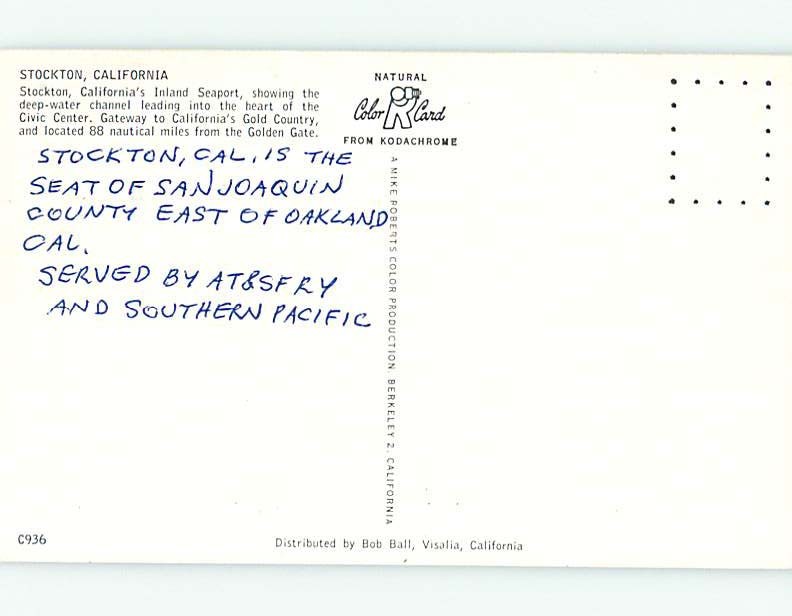 STOCKTON, CALIFORNIA
Stockton, California's Inland Seaport, showing the
deep-water channel leading into the heart of the
Civic Center. Gateway to California's Gold Country,
and located 88 nautical miles from the Golden Gate.
STOCKTON, CAL, IS THE
SEAT OF SAN JOAQUIN
COUNTY EAST OF OAKLAND
CAL.
SERVED BY AT&SF RY
AND SOUTHERN PACIFIC
NATURAL
Color Card
FROM KODACHROME
A MIKE ROBERTS COLOR PRODUCTION. BERKELEY 2, CALIFORNIA
C936
Distributed by Bob Ball, Visalia, California